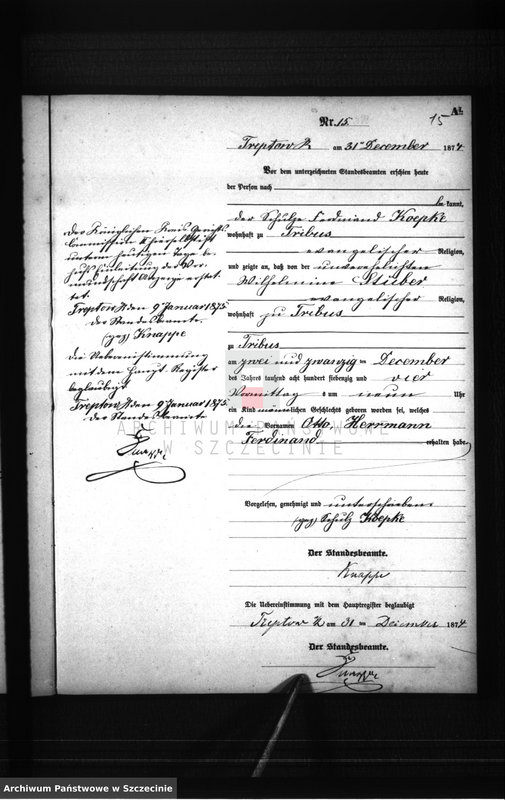 A1.
Nr. 15.
15
Treptow R. am 31ten December 1874
Vor dem unterzeichneten Standesbeamten erschien heute
der Person nach
bekannt,
der Schulze Ferdinand Koepke
wohnhaft zu Tribus
evangelischer Religion,
und zeigte an, daß von der unverehelichten
Wilhelmine Stüber
evangelischer Religion,
wohnhaft zu Tribus
zu Tribus
am zwei und zwanzig ten December
des Jahres tausend acht hundert siebenzig und vier
Vormittag s um neun Uhr
ein Kind männlichen Geschlechts geboren worden sei, welches
die Vornamen Otto, Herrmann
Ferdinand
erhalten habe
Vorgelesen, genehmigt und unterschrieben.
(gez) Schulz Koepke
Der Standesbeamte.
Knappe
Die Uebereinstimmung mit dem Hauptregister beglaubigt
Treptow R am 31 ten December 1874
Der Standesbeamte.
Knappe
Der Königlichen Kreis Gerichts
Commission hierselbst ist
unterm heutigen Tage be-
hufs Einleitung der Vor-
mundschaft Anzeige erstat-
tet.
Treptow R den 9 Januar 1875
der Standesbeamte.
(gez) Knappe
die Uebereinstimmung
mit dem Haupt Register
beglaubigt
Treptow R den 9 Januar 1875
der Standesbeamte
Knappe
ARCHIWUM PAŃSTWOWE
W SZCZECINIE
Archiwum Państwowe w Szczecinie